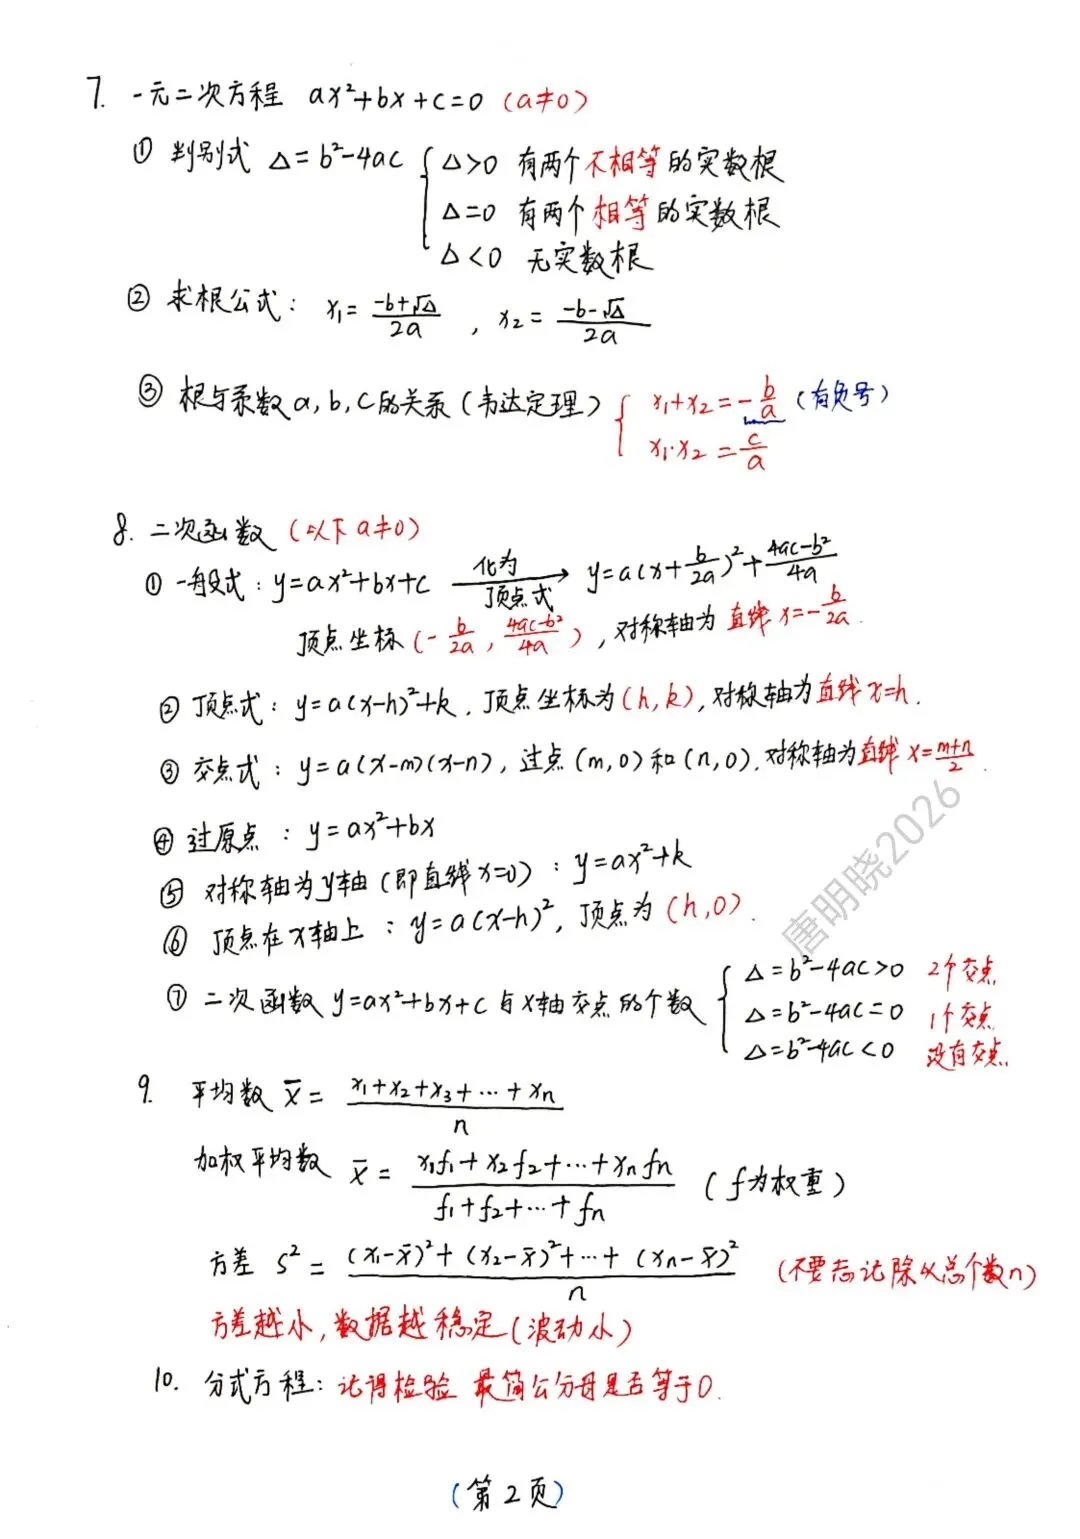 7. 一元二次方程 ax²+bx+c=0 (a≠0)
① 判别式 Δ=b²-4ac { Δ>0 有两个不相等的实数根
Δ=0 有两个相等的实数根
Δ<0 无实数根
② 求根公式: x₁=(-b+√Δ)/2a , x₂=(-b-√Δ)/2a
③ 根与系数a,b,c的关系(韦达定理) { x₁+x₂=-b/a (有负号)
x₁·x₂=c/a
8. 二次函数 (以下a≠0)
① 一般式: y=ax²+bx+c 化为顶点式→ y=a(x+b/2a)²+(4ac-b²)/4a
顶点坐标(-b/2a, (4ac-b²)/4a), 对称轴为直线x=-b/2a.
② 顶点式: y=a(x-h)²+k, 顶点坐标为(h,k), 对称轴为直线x=h.
③ 交点式: y=a(x-m)(x-n), 过点(m,0)和(n,0), 对称轴为直线x=(m+n)/2.
④ 过原点: y=ax²+bx
⑤ 对称轴为y轴(即直线x=0): y=ax²+k
⑥ 顶点在x轴上: y=a(x-h)², 顶点为(h,0).
⑦ 二次函数y=ax²+bx+c与x轴交点的个数 { Δ=b²-4ac>0 2个交点
Δ=b²-4ac=0 1个交点
Δ=b²-4ac<0 没有交点
9. 平均数 x̄=(x₁+x₂+x₃+…+xn)/n
加权平均数 x̄=(x₁f₁+x₂f₂+…+xnfn)/(f₁+f₂+…+fn) (f为权重)
方差 S²=((x₁-x̄)²+(x₂-x̄)²+…+(xn-x̄)²)/n (不要忘记除以总个数n)
方差越小,数据越稳定(波动小)
10. 分式方程: 记得检验 最简公分母是否等于0.
(第2页)
唐明晓2026